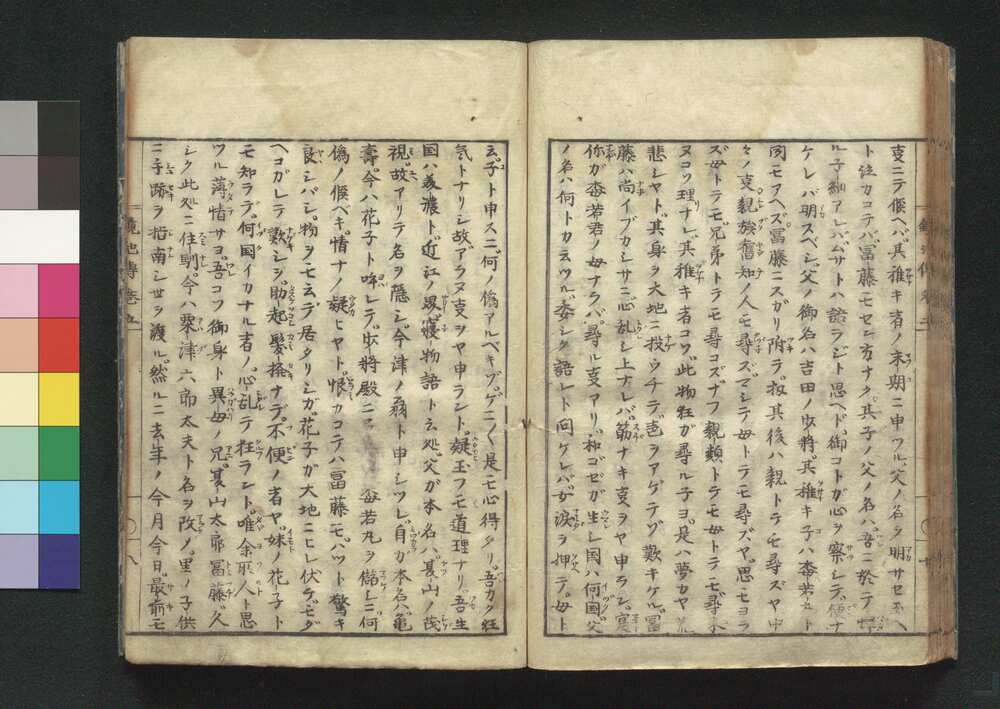 変ニテ候ヘバ其稚キ者ノ末期ニ申ツル父ノ名ヲ明サセ玉ヘ
ト徃カコテバ冨藤モセン方ナク其子ノ父ノ名ハ吾ニ於テ
ル子細アレバムサトハ語ラジト思ヘド御コトガ心ヲ察シテ
ケレバ明スベシ父ノ御名ハ吉田ノ少将其稚キ子ハ
同モアヘズ冨藤ニスガリ附テ扨其後ハ親トテモ尋ズヤ
々ノ変親族旧知ノ人モ尋ズマシテ母トテモ尋ズヤ思モヨラ
ズ母トテモ兄弟トテモ尋コズナフ親類トテモ母トテモ尋
ヌコソ理ナレ其稚キ者コソ此物狂ガ尋ル子ヨ是ハ夢カヤ
悲シヤト其身ヲ大地ニ投ウチテ声ヲアゲテゾ歎キケル冨
藤ハ尚イブカシサニ心乱シ上ナレバ筋ナキ変ヲヤ申ラン
你ガ若ノ母ナラバ尋ル変アリ和ゴゼガ生レ国ハ何国父
ノ名ハ何トカ云ツル委シク語レト問ケレバ女涙ヲ押テ母ト
云子ト申スニ何ノ偽アルベキゾゲニ〱是モ心得タリ吾カク狂
気トナリシ故アラヌ変ヲヤ申ラント疑玉フモ道理ナリ吾生
国ハ美濃ト近江ノ界寝物語ト云処父ガ本名ハ夏山ノ茂
視故アリテ名ヲ隠シ今津ノ翁ト申シツレ自カ本名ハ亀
寿今ハ花子ト呼レテ少将殿ニ 若丸ヲ儲レニ何
偽ノ候ベキ情ナノ疑ヒヤト恨カコテハ冨藤モハット驚キ
良シバシ物ヲモ云デ居タリシガ花子ガ大地ニヒレ伏ケヲモダ
ヘコガレテ歎シヲ助起髪掻ナデ不便ノ者ヤ妹ノ花子ト
モ知ラデ何国イカナル者ノ心乱テ狂ラント唯余所人ト思
ツル薄情サヨ吾コソ御身ト異母ノ兄夏山太郎冨藤久
シク此処ニ住馴今ハ粟津六郎太夫ト名ヲ改ノ里ノ子供
ニ手跡ヲ指南シ世ヲ渡ル然ルニ去年ノ今月今日最前モ